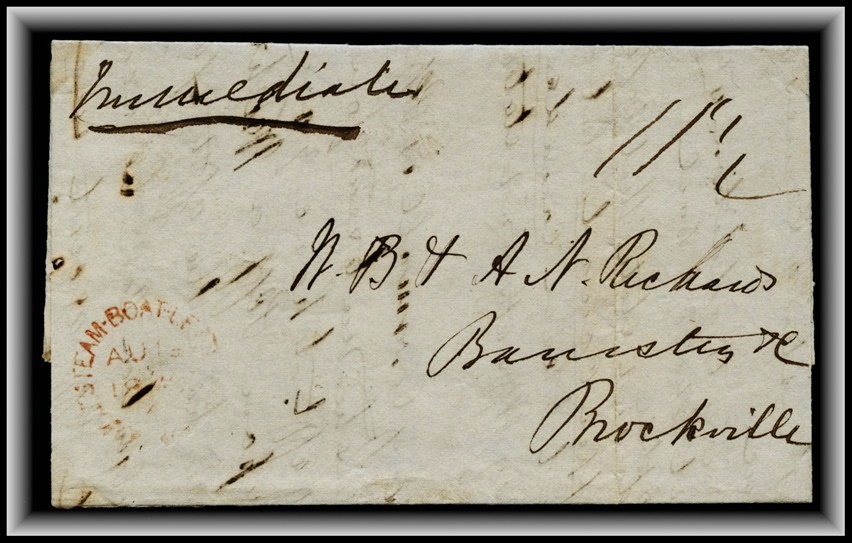 Immediate
11 1/2
W. B & A. N. Richards
Barristers &c
Brockville
STEAM-BOAT-LETTER
AU
18